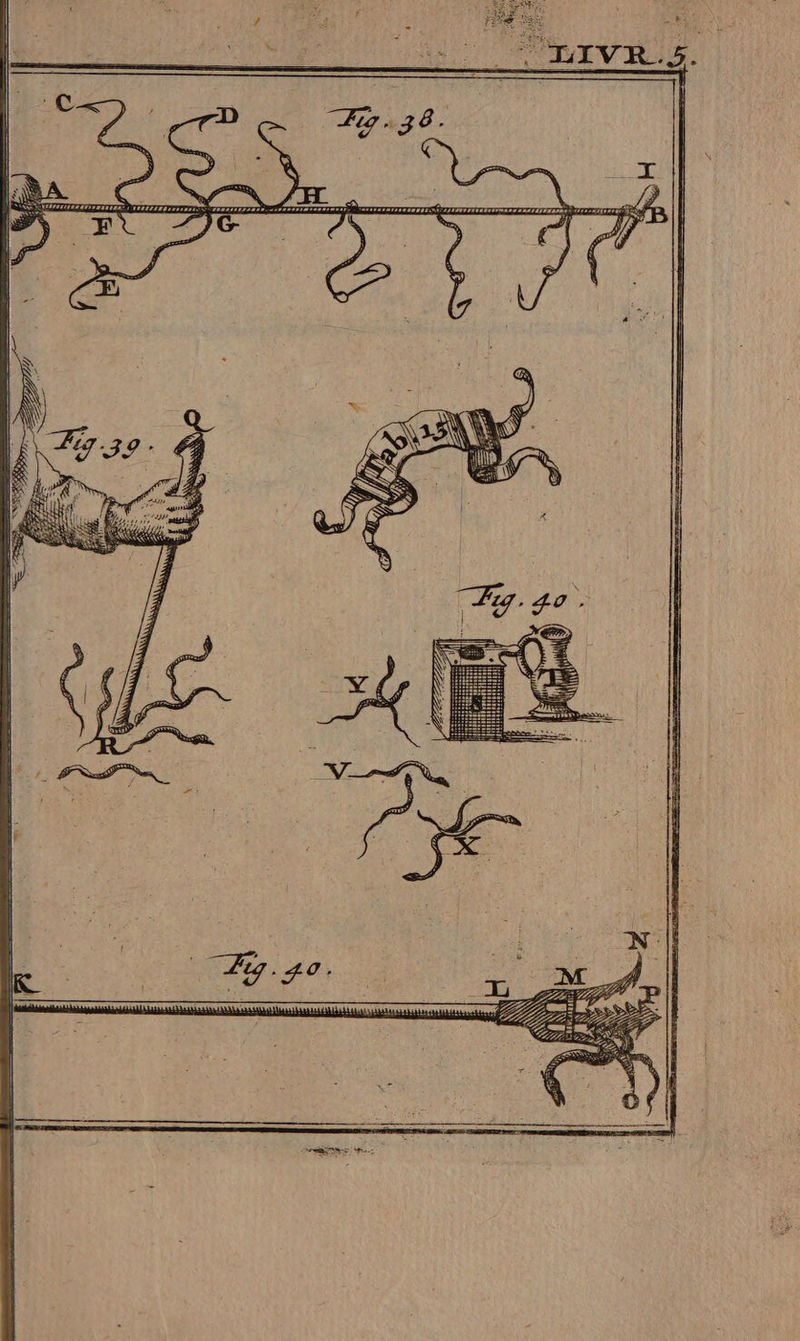 LIVR. 5.
C D Fig. 38.
I
A H B
F G
E
Q
Fig. 39.
Tab. 15
Fig. 40.
T
Y S
R
V
X
N
Fig. 40.
K L M
P
O